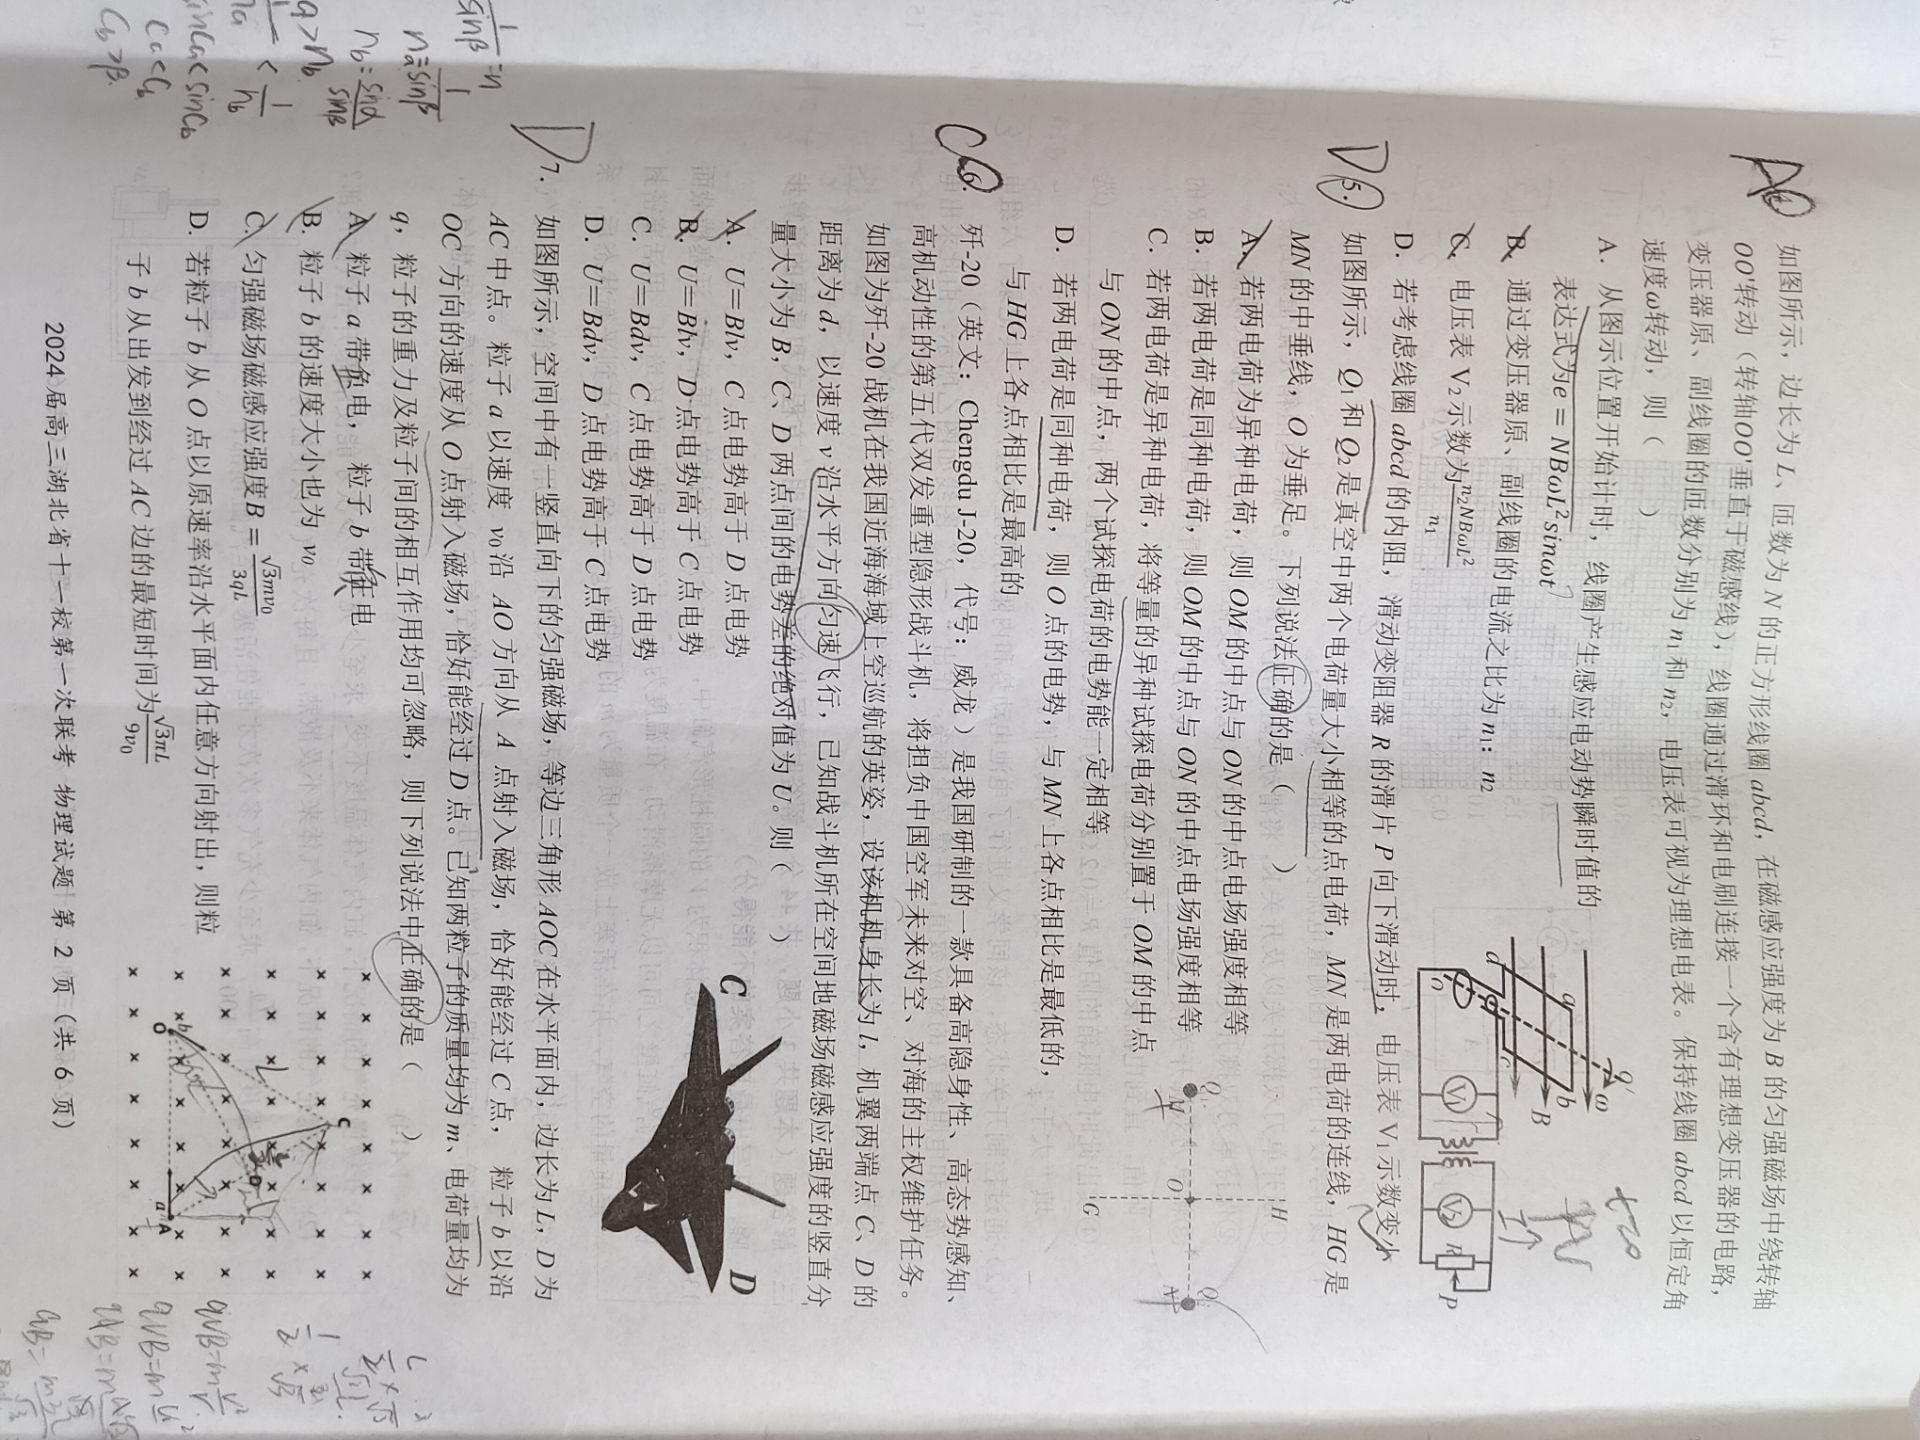 A④ 如图所示，边长为 L、匝数为 N 的正方形线圈 abcd，在磁感应强度为 B 的匀强磁场中绕转轴
OO′转动（转轴OO′垂直于磁感线），线圈通过滑环和电刷连接一个含有理想变压器的电路，
变压器原、副线圈的匝数分别为 n₁ 和 n₂，电压表可视为理想电表。保持线圈 abcd 以恒定角
速度ω转动，则（ ）
A. 从图示位置开始计时，线圈产生感应电动势瞬时值的
表达式为 e = NBωL²sinωt
B. 通过变压器原、副线圈的电流之比为 n₁: n₂
C. 电压表 V₂ 示数为 n₂NBωL²/n₁
D. 若考虑线圈 abcd 的内阻，滑动变阻器 R 的滑片 P 向下滑动时，电压表 V₁ 示数变小
O′
ω
a
b
B
d
c
O
V₁
V₂
R
P
t=0
D 5. 如图所示，Q₁和 Q₂ 是真空中两个电荷量大小相等的点电荷，MN 是两电荷的连线，HG 是
MN 的中垂线，O 为垂足。下列说法正确的是（ ）
A. 若两电荷为异种电荷，则 OM 的中点与 ON 的中点电场强度相等
B. 若两电荷是同种电荷，则 OM 的中点与 ON 的中点电场强度相等
C. 若两电荷是异种电荷，将等量的异种试探电荷分别置于 OM 的中点
与 ON 的中点，两个试探电荷的电势能一定相等
D. 若两电荷是同种电荷，则 O 点的电势，与 MN 上各点相比是最低的，
与 HG 上各点相比是最高的
H
Q₁
Q₂
M
O
N
G
C 6. 歼-20（英文：Chengdu J-20，代号：威龙）是我国研制的一款具备高隐身性、高态势感知、
高机动性的第五代双发重型隐形战斗机，将担负中国空军未来对空、对海的主权维护任务。
如图为歼-20 战机在我国近海海域上空巡航的英姿，设该机机身长为 l，机翼两端点 C、D 的
距离为 d，以速度 v 沿水平方向匀速飞行，已知战斗机所在空间地磁场磁感应强度的竖直分
量大小为 B，C、D 两点间的电势差的绝对值为 U。则（ ）
A. U=Blv, C 点电势高于 D 点电势
B. U=Blv, D 点电势高于 C 点电势
C. U=Bdv, C 点电势高于 D 点电势
D. U=Bdv, D 点电势高于 C 点电势
C
D
D 7. 如图所示，空间中有一竖直向下的匀强磁场，等边三角形 AOC 在水平面内，边长为 L，D 为
AC 中点。粒子 a 以速度 v₀ 沿 AO 方向从 A 点射入磁场，恰好能经过 C 点，粒子 b 以沿
OC 方向的速度从 O 点射入磁场，恰好能经过 D 点。已知两粒子的质量均为 m、电荷量均为
q，粒子的重力及粒子间的相互作用均可忽略，则下列说法中正确的是（ ）
A. 粒子 a 带负电，粒子 b 带正电
B. 粒子 b 的速度大小也为 v₀
C. 匀强磁场磁感应强度 B = √3mv₀/3qL
D. 若粒子 b 从 O 点以原速率沿水平面内任意方向射出，则粒
子 b 从出发到经过 AC 边的最短时间为 √3πL/9v₀
C
L
O
b
D
a
A
2024 届高三湖北省十一校第一次联考 物理试题 第 2 页（共 6 页）